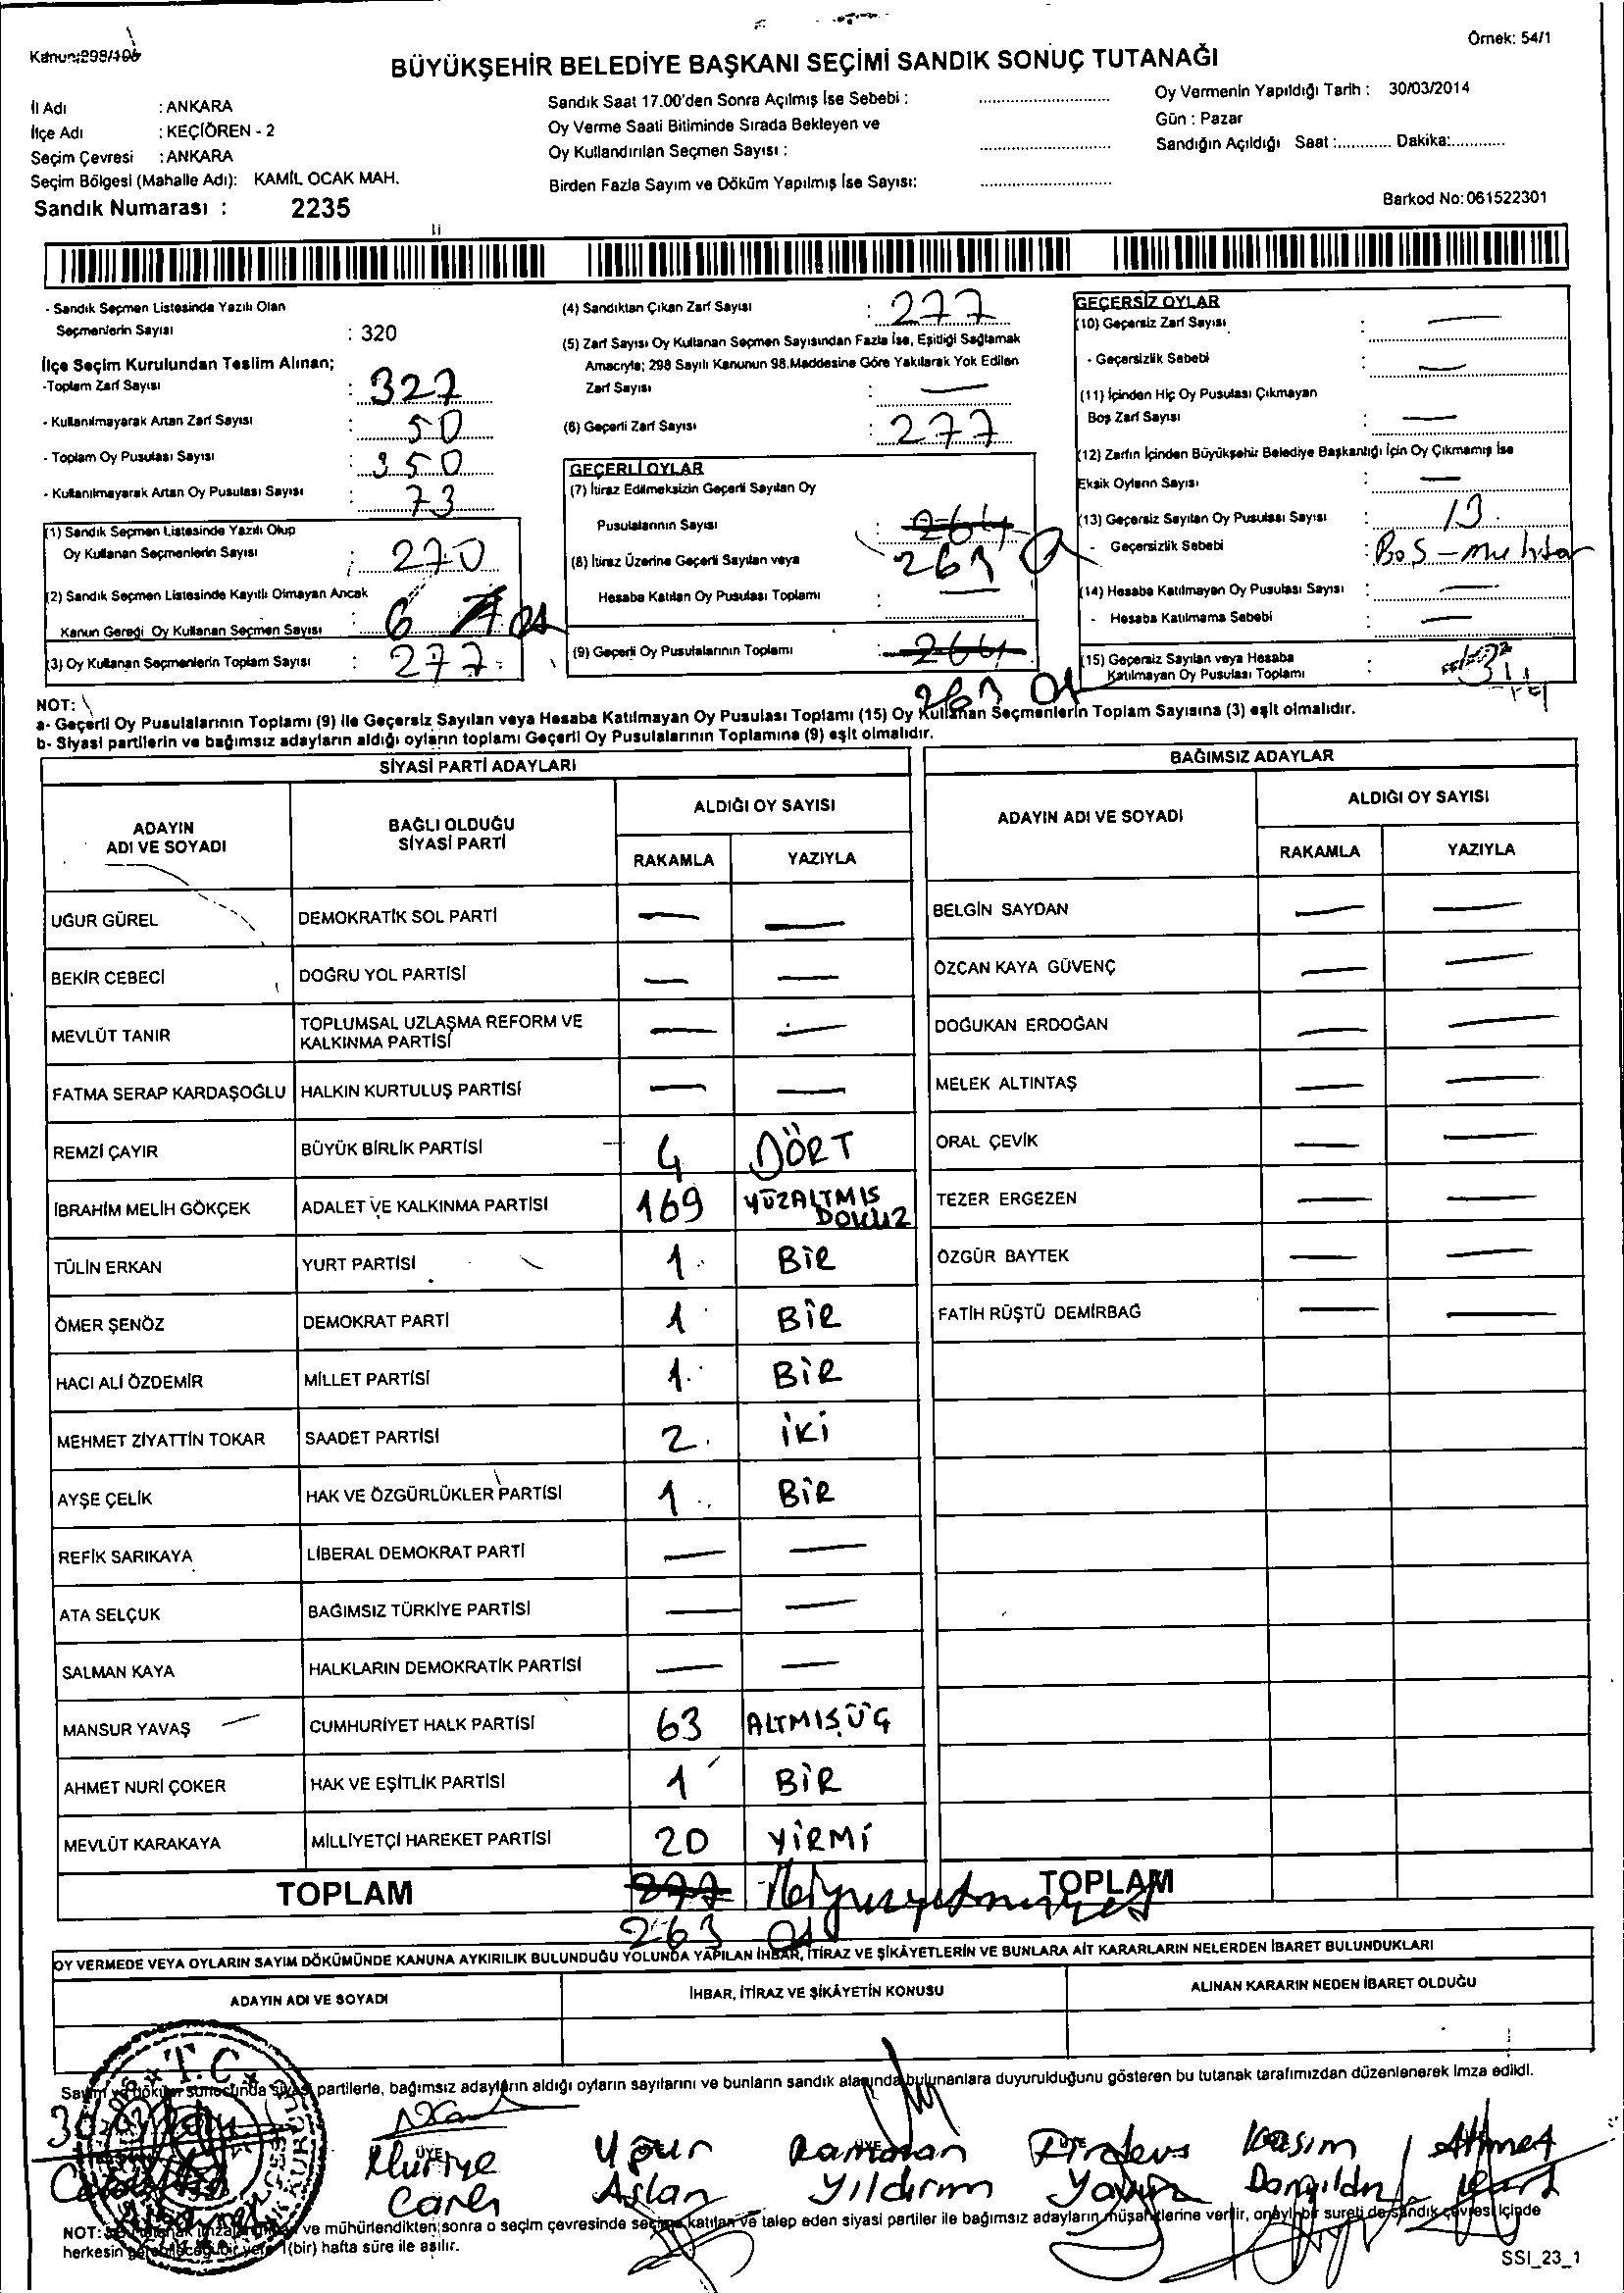 Örnek: 54/1
BÜYÜKŞEHİR BELEDİYE BAŞKANI SEÇİMİ SANDIK SONUÇ TUTANAĞI
İl Adı : ANKARA
İlçe Adı : KEÇİÖREN - 2
Seçim Çevresi : ANKARA
Seçim Bölgesi (Mahalle Adı): KAMİL OCAK MAH.
Sandık Numarası : 2235
Sandık Saat 17.00'den Sonra Açılmış İse Sebebi :
Oy Verme Saati Bitiminde Sırada Bekleyen ve
Oy Kullandırılan Seçmen Sayısı :
Birden Fazla Sayım ve Döküm Yapılmış İse Sayısı:
Oy Vermenin Yapıldığı Tarih : 30/03/2014
Gün : Pazar
Sandığın Açıldığı Saat :............ Dakika:............
Barkod No: 061522301
- Sandık Seçmen Listesinde Yazılı Olan
Seçmenlerin Sayısı : 320
İlçe Seçim Kurulundan Teslim Alınan;
-Toplam Zarf Sayısı : 327
- Kullanılmayarak Artan Zarf Sayısı : 50
- Toplam Oy Pusulası Sayısı : 350
- Kullanılmayarak Artan Oy Pusulası Sayısı : 73
(1) Sandık Seçmen Listesinde Yazılı Olup
Oy Kullanan Seçmenlerin Sayısı : 270
(2) Sandık Seçmen Listesinde Kayıtlı Olmayan Ancak
Kanun Gereği Oy Kullanan Seçmen Sayısı : 6 7
(3) Oy Kullanan Seçmenlerin Toplam Sayısı : 277
(4) Sandıktan Çıkan Zarf Sayısı : 277
(5) Zarf Sayısı Oy Kullanan Seçmen Sayısından Fazla İse, Eşitliği Sağlamak
Amacıyla; 298 Sayılı Kanunun 98.Maddesine Göre Yakılarak Yok Edilen
Zarf Sayısı : —
(6) Geçerli Zarf Sayısı : 277
GEÇERLİ OYLAR
(7) İtiraz Edilmeksizin Geçerli Sayılan Oy
Pusulalarının Sayısı : 264
263
(8) İtiraz Üzerine Geçerli Sayılan veya
Hesaba Katılan Oy Pusulası Toplamı : —
(9) Geçerli Oy Pusulalarının Toplamı : 264
263
GEÇERSİZ OYLAR
(10) Geçersiz Zarf Sayısı : —
- Geçersizlik Sebebi : —
(11) İçinden Hiç Oy Pusulası Çıkmayan
Boş Zarf Sayısı : —
(12) Zarfın İçinden Büyükşehir Belediye Başkanlığı İçin Oy Çıkmamış İse
Eksik Oyların Sayısı : —
(13) Geçersiz Sayılan Oy Pusulası Sayısı : 13
- Geçersizlik Sebebi : BoS - muhtar
(14) Hesaba Katılmayan Oy Pusulası Sayısı : —
- Hesaba Katılmama Sebebi : —
(15) Geçersiz Sayılan veya Hesaba
Katılmayan Oy Pusulası Toplamı :
NOT:
a- Geçerli Oy Pusulalarının Toplamı (9) ile Geçersiz Sayılan veya Hesaba Katılmayan Oy Pusulası Toplamı (15) Oy Kullanan Seçmenlerin Toplam Sayısına (3) eşit olmalıdır.
b- Siyasi partilerin ve bağımsız adayların aldığı oyların toplamı Geçerli Oy Pusulalarının Toplamına (9) eşit olmalıdır.
SİYASİ PARTİ ADAYLARI
ADAYIN ADI VE SOYADI
BAĞLI OLDUĞU SİYASİ PARTİ
ALDIĞI OY SAYISI
RAKAMLA YAZIYLA
UĞUR GÜREL DEMOKRATİK SOL PARTİ — —
BEKİR CEBECİ DOĞRU YOL PARTİSİ — —
MEVLÜT TANIR TOPLUMSAL UZLAŞMA REFORM VE KALKINMA PARTİSİ — —
FATMA SERAP KARDAŞOĞLU HALKIN KURTULUŞ PARTİSİ — —
REMZİ ÇAYIR BÜYÜK BİRLİK PARTİSİ 4 DÖRT
İBRAHİM MELİH GÖKÇEK ADALET VE KALKINMA PARTİSİ 169 YÜZALTMIS DOKUZ
TÜLİN ERKAN YURT PARTİSİ 1 BİR
ÖMER ŞENÖZ DEMOKRAT PARTİ 1 BİR
HACI ALİ ÖZDEMİR MİLLET PARTİSİ 1 BİR
MEHMET ZİYATTİN TOKAR SAADET PARTİSİ 2 İKİ
AYŞE ÇELİK HAK VE ÖZGÜRLÜKLER PARTİSİ 1 BİR
REFİK SARIKAYA LİBERAL DEMOKRAT PARTİ — —
ATA SELÇUK BAĞIMSIZ TÜRKİYE PARTİSİ — —
SALMAN KAYA HALKLARIN DEMOKRATİK PARTİSİ — —
MANSUR YAVAŞ CUMHURİYET HALK PARTİSİ 63 ALTMIŞÜÇ
AHMET NURİ ÇOKER HAK VE EŞİTLİK PARTİSİ 1 BİR
MEVLÜT KARAKAYA MİLLİYETÇİ HAREKET PARTİSİ 20 YİRMİ
TOPLAM 277
263
BAĞIMSIZ ADAYLAR
ADAYIN ADI VE SOYADI
ALDIĞI OY SAYISI
RAKAMLA YAZIYLA
BELGİN SAYDAN — —
ÖZCAN KAYA GÜVENÇ — —
DOĞUKAN ERDOĞAN — —
MELEK ALTINTAŞ — —
ORAL ÇEVİK — —
TEZER ERGEZEN — —
ÖZGÜR BAYTEK — —
FATİH RÜŞTÜ DEMİRBAĞ — —
TOPLAM
OY VERMEDE VEYA OYLARIN SAYIM DÖKÜMÜNDE KANUNA AYKIRILIK BULUNDUĞU YOLUNDA YAPILAN İHBAR, İTİRAZ VE ŞİKÂYETLERİN VE BUNLARA AİT KARARLARIN NELERDEN İBARET BULUNDUKLARI
ADAYIN ADI VE SOYADI İHBAR, İTİRAZ VE ŞİKÂYETİN KONUSU ALINAN KARARIN NEDEN İBARET OLDUĞU
T.C
Sayım ve döküm sonucunda siyasi partilerle, bağımsız adayların aldığı oyların sayılarını ve bunların sandık alanında bulunanlara duyurulduğunu gösteren bu tutanak tarafımızdan düzenlenerek imza edildi.
ÜYE
Uğur Ramazan Firdevs Kasım Ahmet
Aslan Yıldırım
ve mühürlendikten sonra o seçim çevresinde seçime katılan ve talep eden siyasi partiler ile bağımsız adayların müşahitlerine verilir, onaylı bir sureti de sandık çevresi içinde
herkesin 1(bir) hafta süre ile asılır.
SSI_23_1